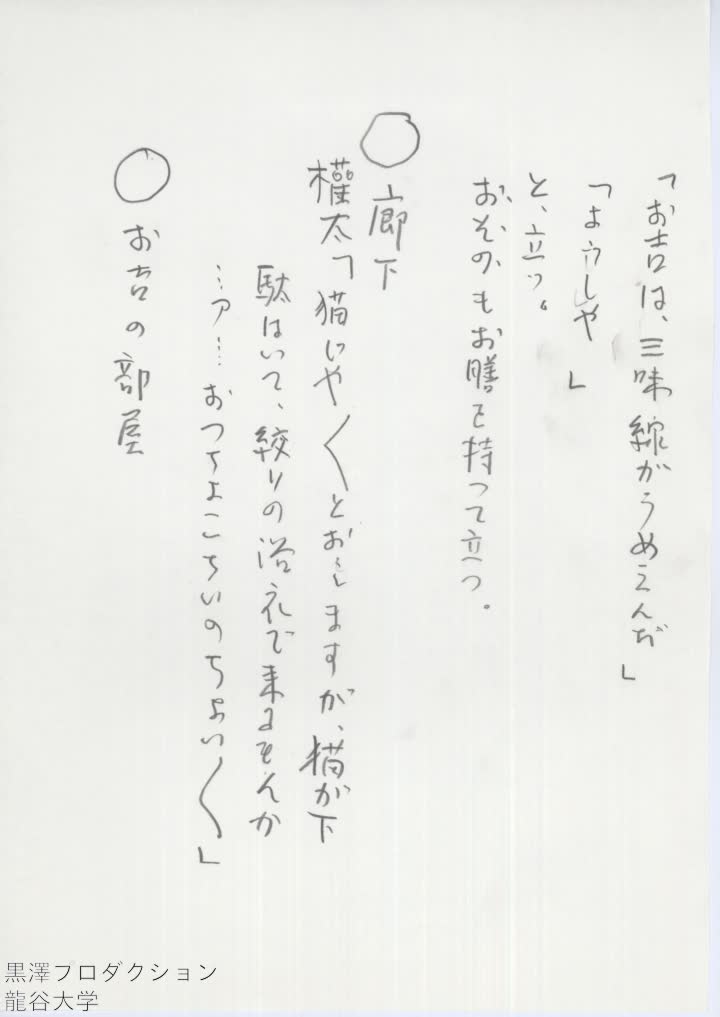 「お吉は、三味線がうめえんだ」
「ようしや」
と、立つ。
おそのもお膳を持つて立つ。
○廊下
權太「猫じや〱とおしますが、猫が下
駄はいて、絞りの浴衣で来るもんか
…ア…おつちよこちよいのちよい〱」
○お吉の部屋
黒澤プロダクション
龍谷大学